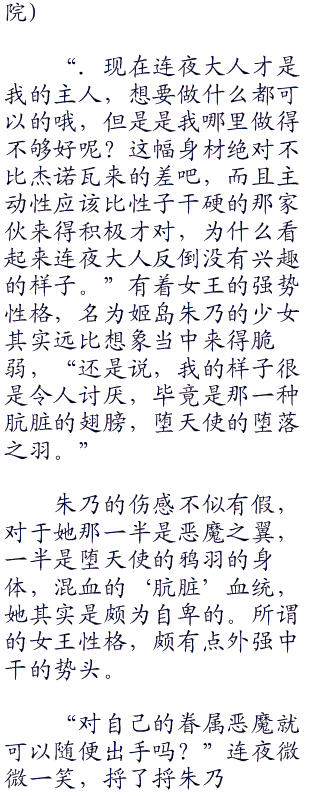 院）
“．现在连夜大人才是
我的主人，想要做什么都可
以的哦，但是是我哪里做得
不够好呢？这幅身材绝对不
比杰诺瓦来的差吧，而且主
动性应该比性子干硬的那家
伙来得积极才对，为什么看
起来连夜大人反倒没有兴趣
的样子。”有着女王的强势
性格，名为姬岛朱乃的少女
其实远比想象当中来得脆
弱，“还是说，我的样子很
是令人讨厌，毕竟是那一种
肮脏的翅膀，堕天使的堕落
之羽。”
朱乃的伤感不似有假，
对于她那一半是恶魔之翼，
一半是堕天使的鸦羽的身
体，混血的‘肮脏’血统，
她其实是颇为自卑的。所谓
的女王性格，颇有点外强中
干的势头。
“对自己的眷属恶魔就
可以随便出手吗？”连夜微
微一笑，捋了捋朱乃